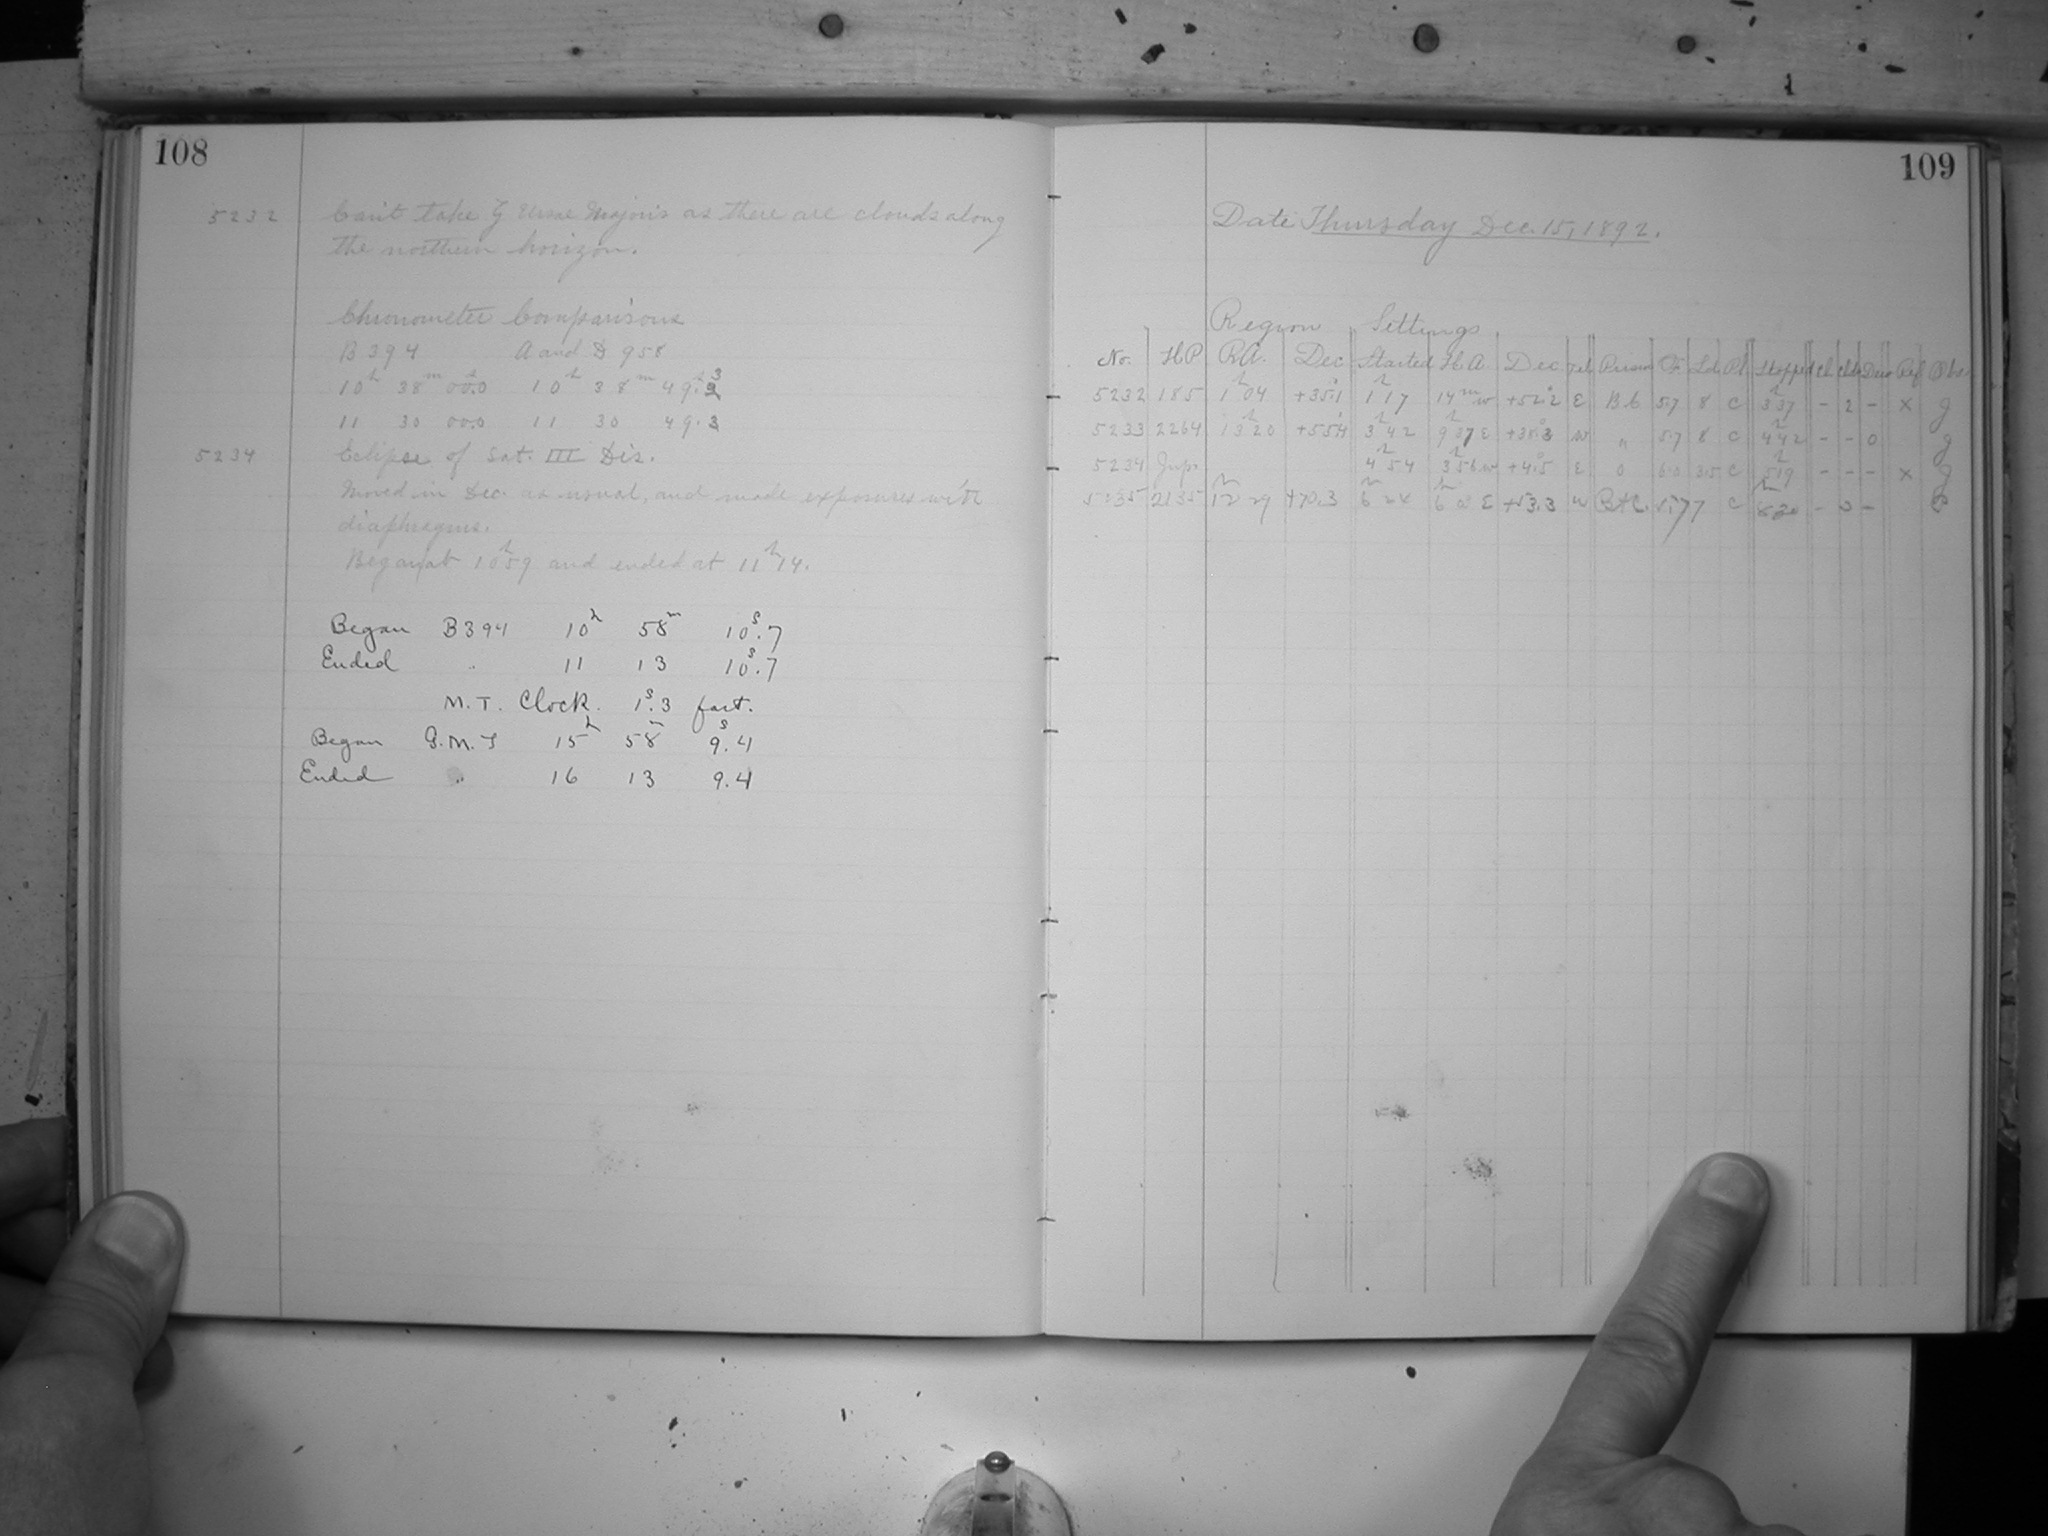 108
5232 Can't take ζ Ursae Majoris as there are clouds along
the northern horizon.
Chronometer Comparisons
B 394 A and D 958
10h 38m 00.0 10h 38m 49.3
11 30 00.0 11 30 49.3
5234 Eclipse of Sat. III Dis.
Moved in Dec. as usual, and made exposures with
diaphragms.
Began at 10h59 and ended at 11h14.
Began B394 10h 58m 10s.7
Ended " 11 13 10s.7
M.T. Clock. 1s.3 fast.
Began G.M.T 15h 58m 9s.4
Ended " 16 13 9.4
109
Date Thursday Dec. 15, 1892.
Region Settings
No. HP RA. Dec Started H.A. Dec Tel. Prism F. Ld Pl Stopped Cl. Clds Dew Ref Obs
5232 185 1h04 +35.1 1h17 14m w +52.2 E B C 5.7 8 C 3h37 - 2 - x g
5233 2264 13h20 +55.4 3h42 9h37 E +38.3 w " 5.7 8 C 4h42 - - 0 g
5234 Jup. 4h54 3h56 w +4.5 E 0 6.0 3.5 C 5h19 - - - x g
5235 2135 12h29 +70.3 6h24 6h E +53.3 w B+C. 5.7 7 C